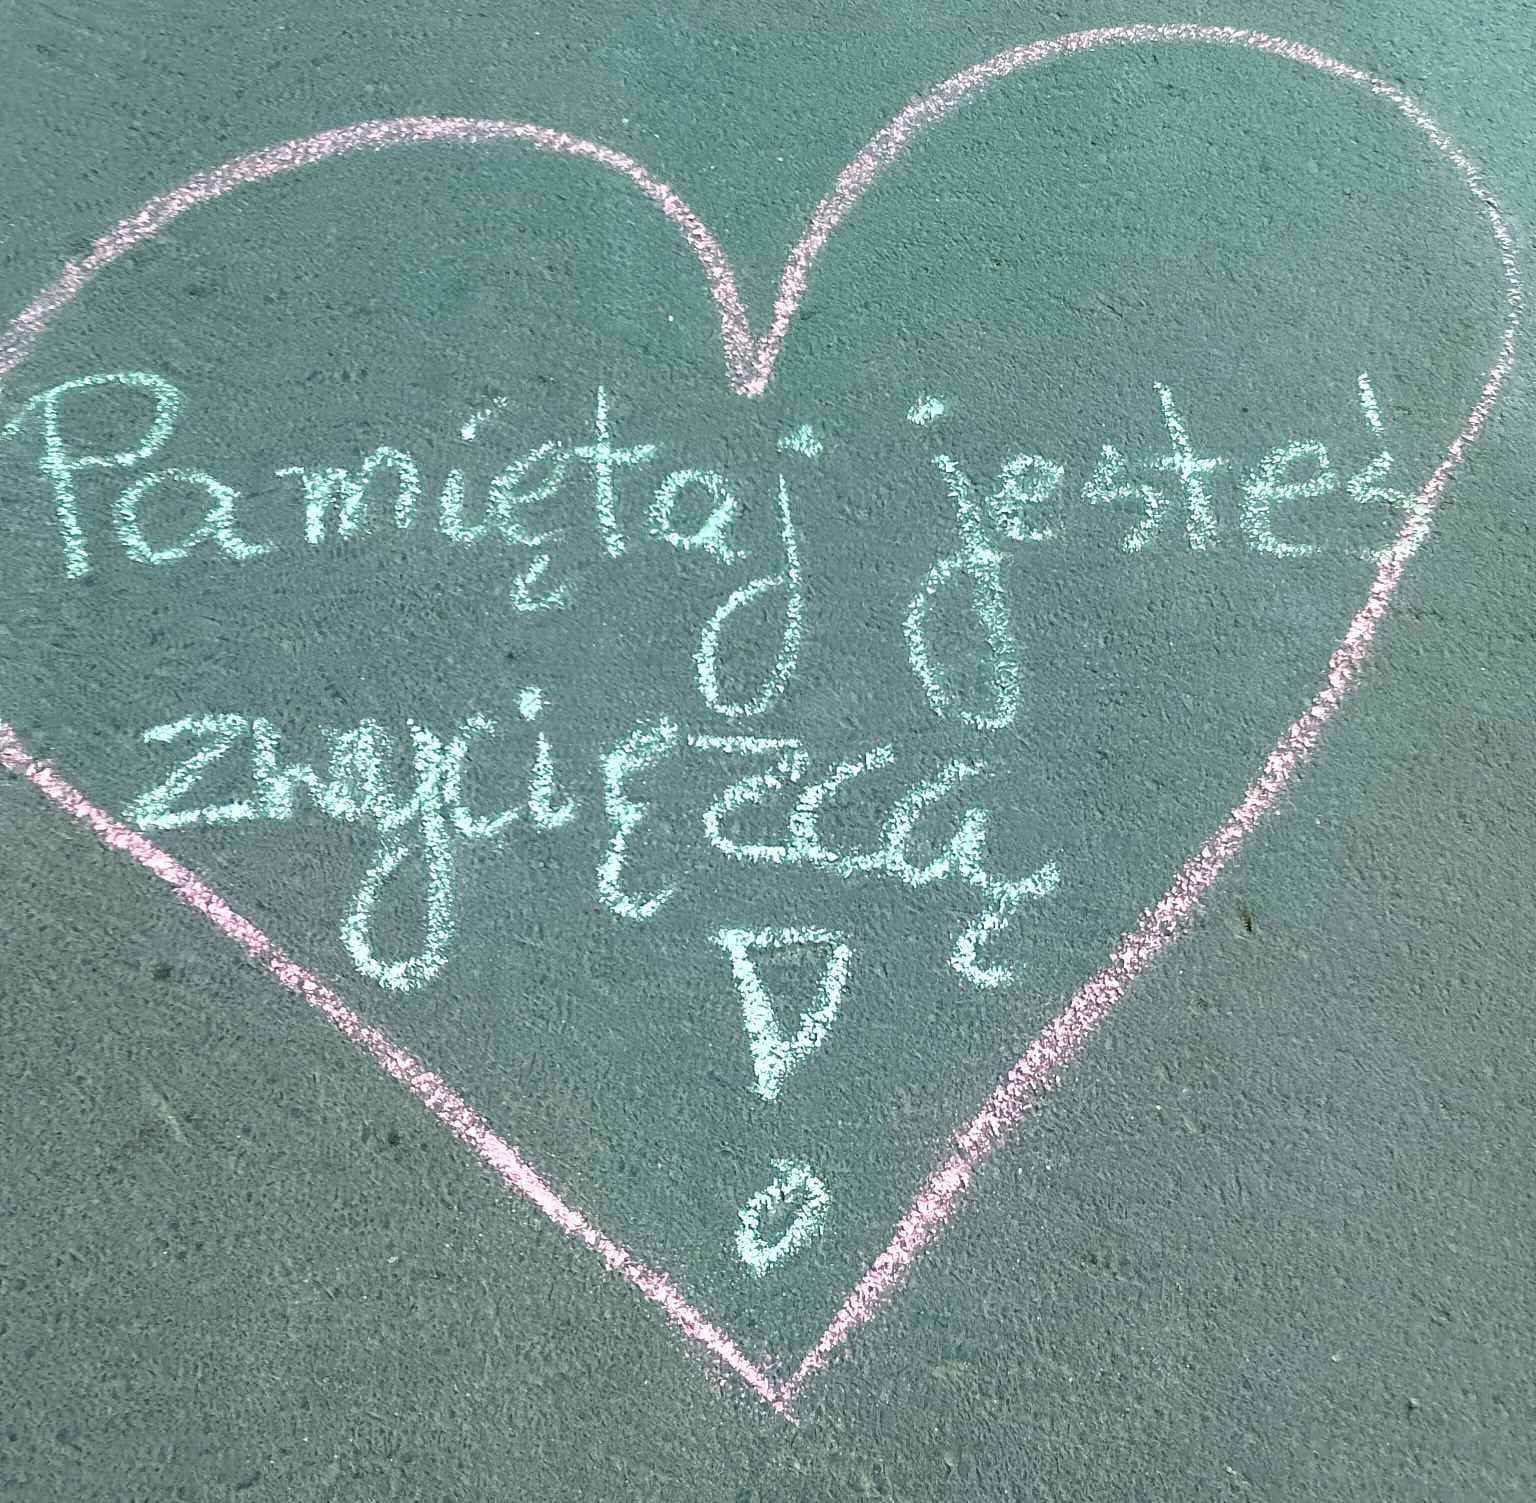 Pamiętaj jesteś
zwyciężcą
!